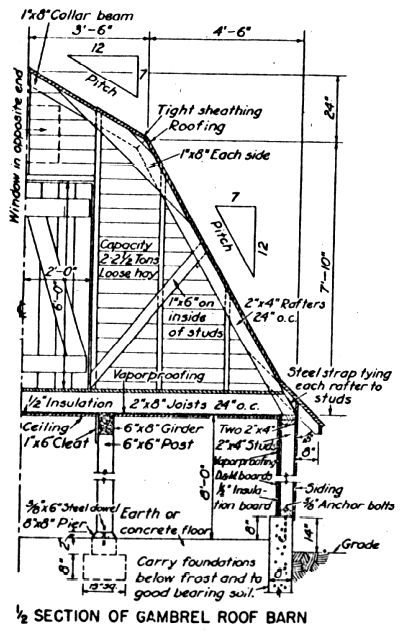 1"x8" Collar beam
3'-6"
4'-6"
12
7
Pitch
24"
Tight sheathing
Roofing
Window in opposite end
1"x8" Each side
7
12
Pitch
7'-10"
Capacity
2-2½ Tons
Loose hay
2'-0"
6'-0"
1"x6" on
inside
of studs
2"x4" Rafters
24" o.c.
Vaporproofing
Steel strap tying
each rafter to
studs
½" Insulation
2"x8" Joists 24" o.c.
Ceiling
1"x6" Cleat
6"x8" Girder
6"x6" Post
Two 2"x4"
2"x4" Studs
Vaporproofing
D&M boards
½" Insula-
tion board
8"
8'-0"
Siding
⅝" Anchor bolts
⅝"x6" Steel dowel
8"x8" Pier
Earth or
concrete floor
8"
14"
Grade
2"
8"
15" sq.
Carry foundations
below frost and to
good bearing soil.
½ SECTION OF GAMBREL ROOF BARN